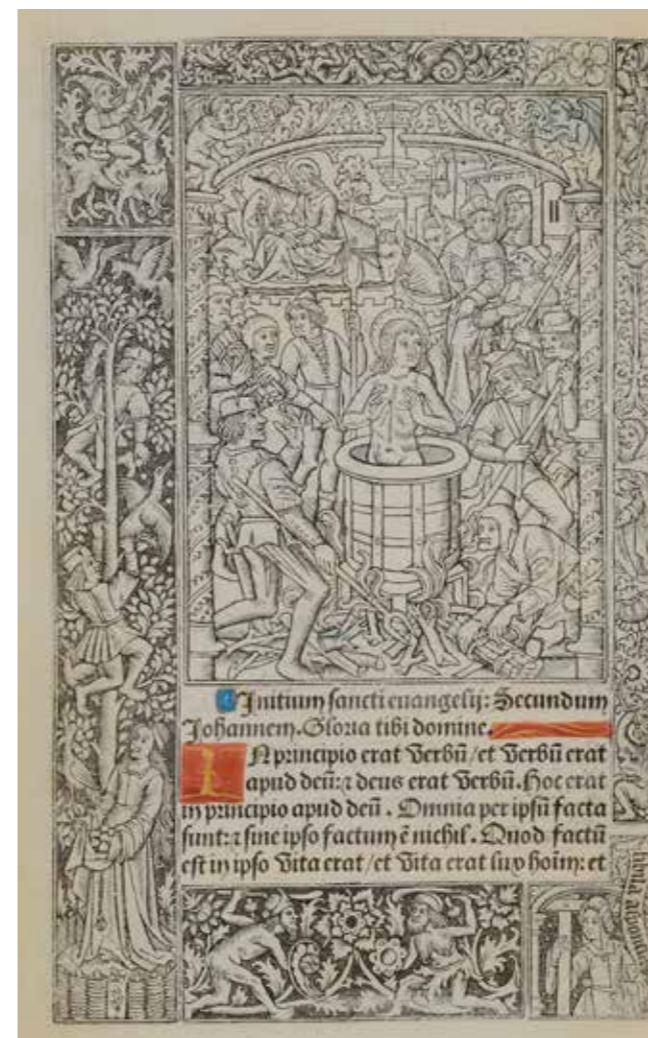 Initium sancti euangelij: Secundum
Johannem. Gloria tibi domine.
IN principio erat Verbū / et Verbū erat
apud deū: ⁊ deus erat Verbū. Hoc erat
in principio apud deū. Omnia per ipsū facta
sunt: ⁊ sine ipso factum ē nichil. Quod factū
est in ipso Vita erat / et Vita erat lux hoīm: et